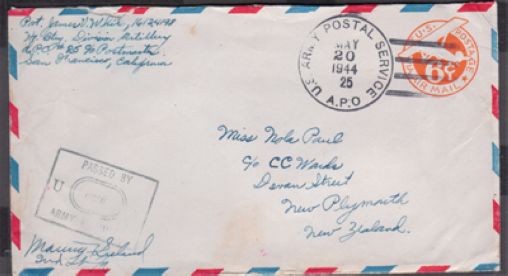 Pvt. James V. White, 16124198
Hq. Btry. Division Artillery
A.P.O. # 25 % Postmaster
San Francisco, California
U.S. ARMY POSTAL SERVICE
MAY
20
1944
25
A.P.O
U.S. POSTAGE
6¢
AIR MAIL
Miss Nola Paul
c/o CC Wards
Devon Street
New Plymouth
New Zealand.
PASSED BY
U
ARMY
2nd Lt.